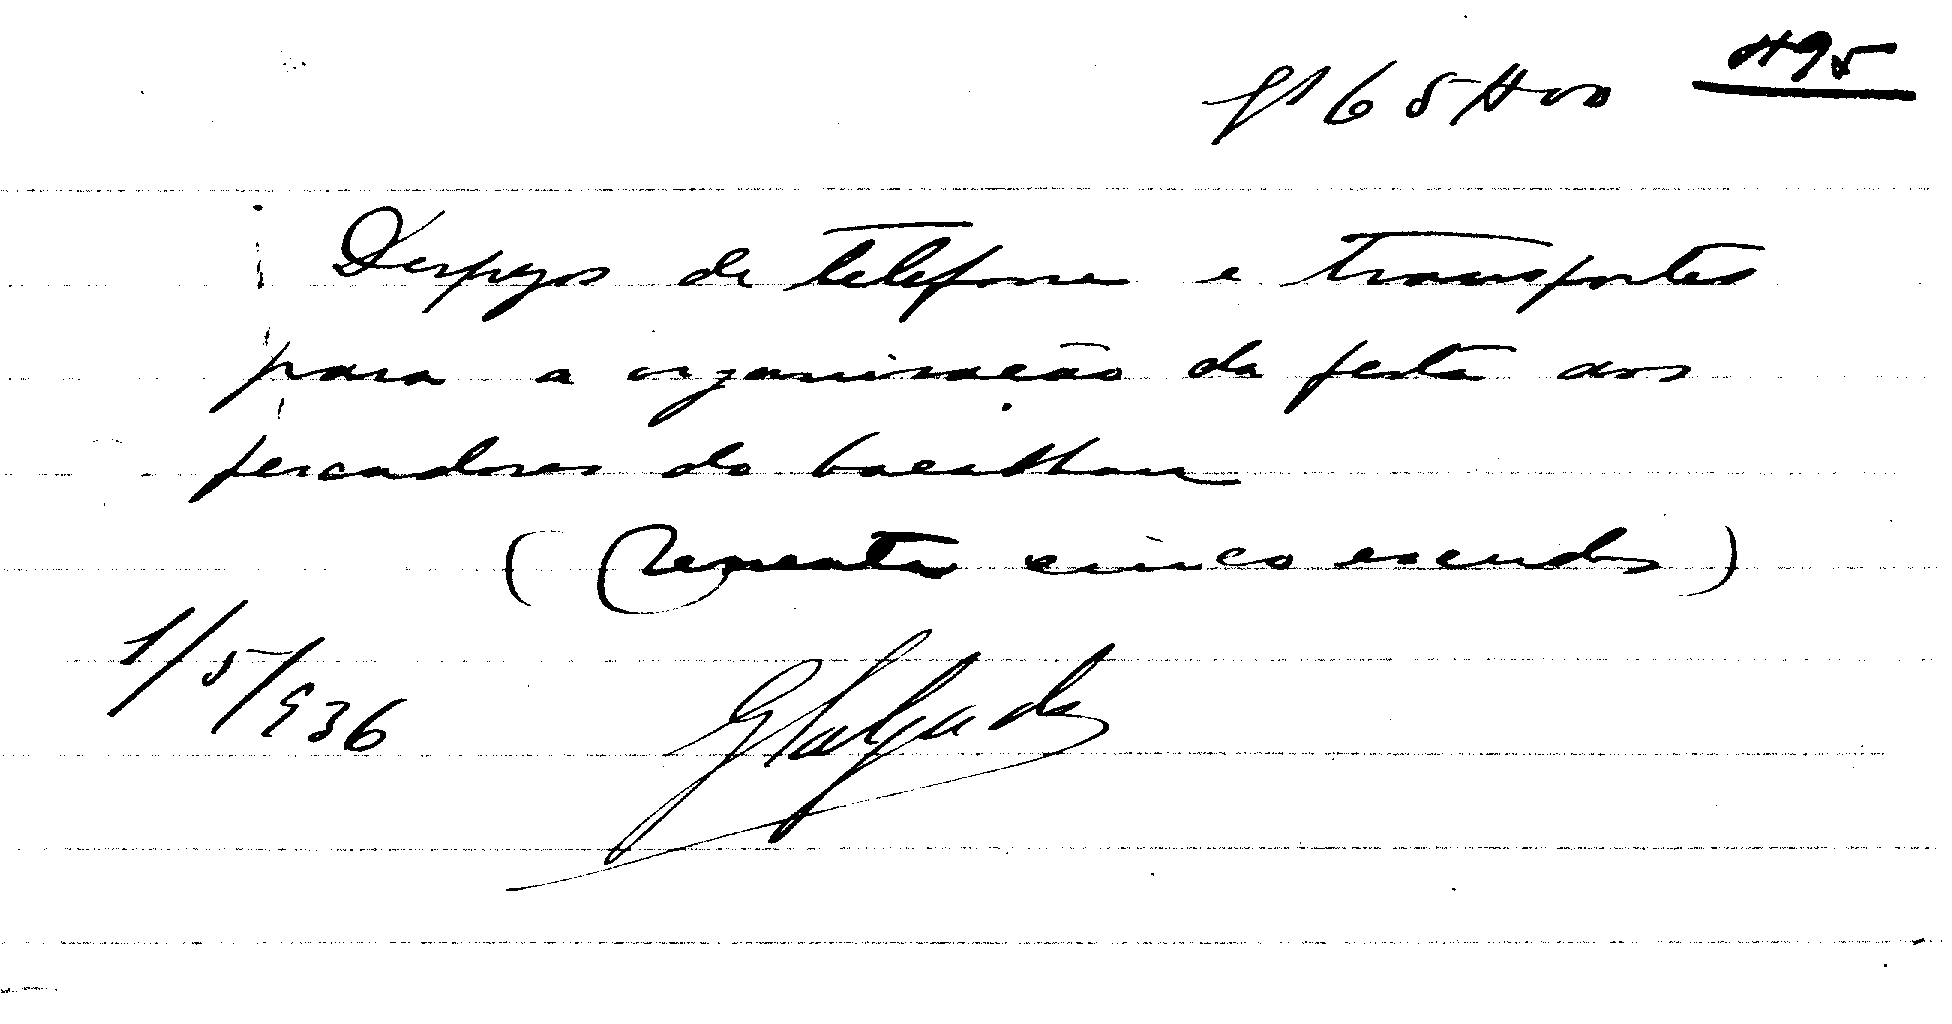 495
65$00
Despezas de telefone e transportes
para a organisação da festa aos
pescadores do bacalhau
(Sessenta cinco escudos)
1/5/936
GSalgado